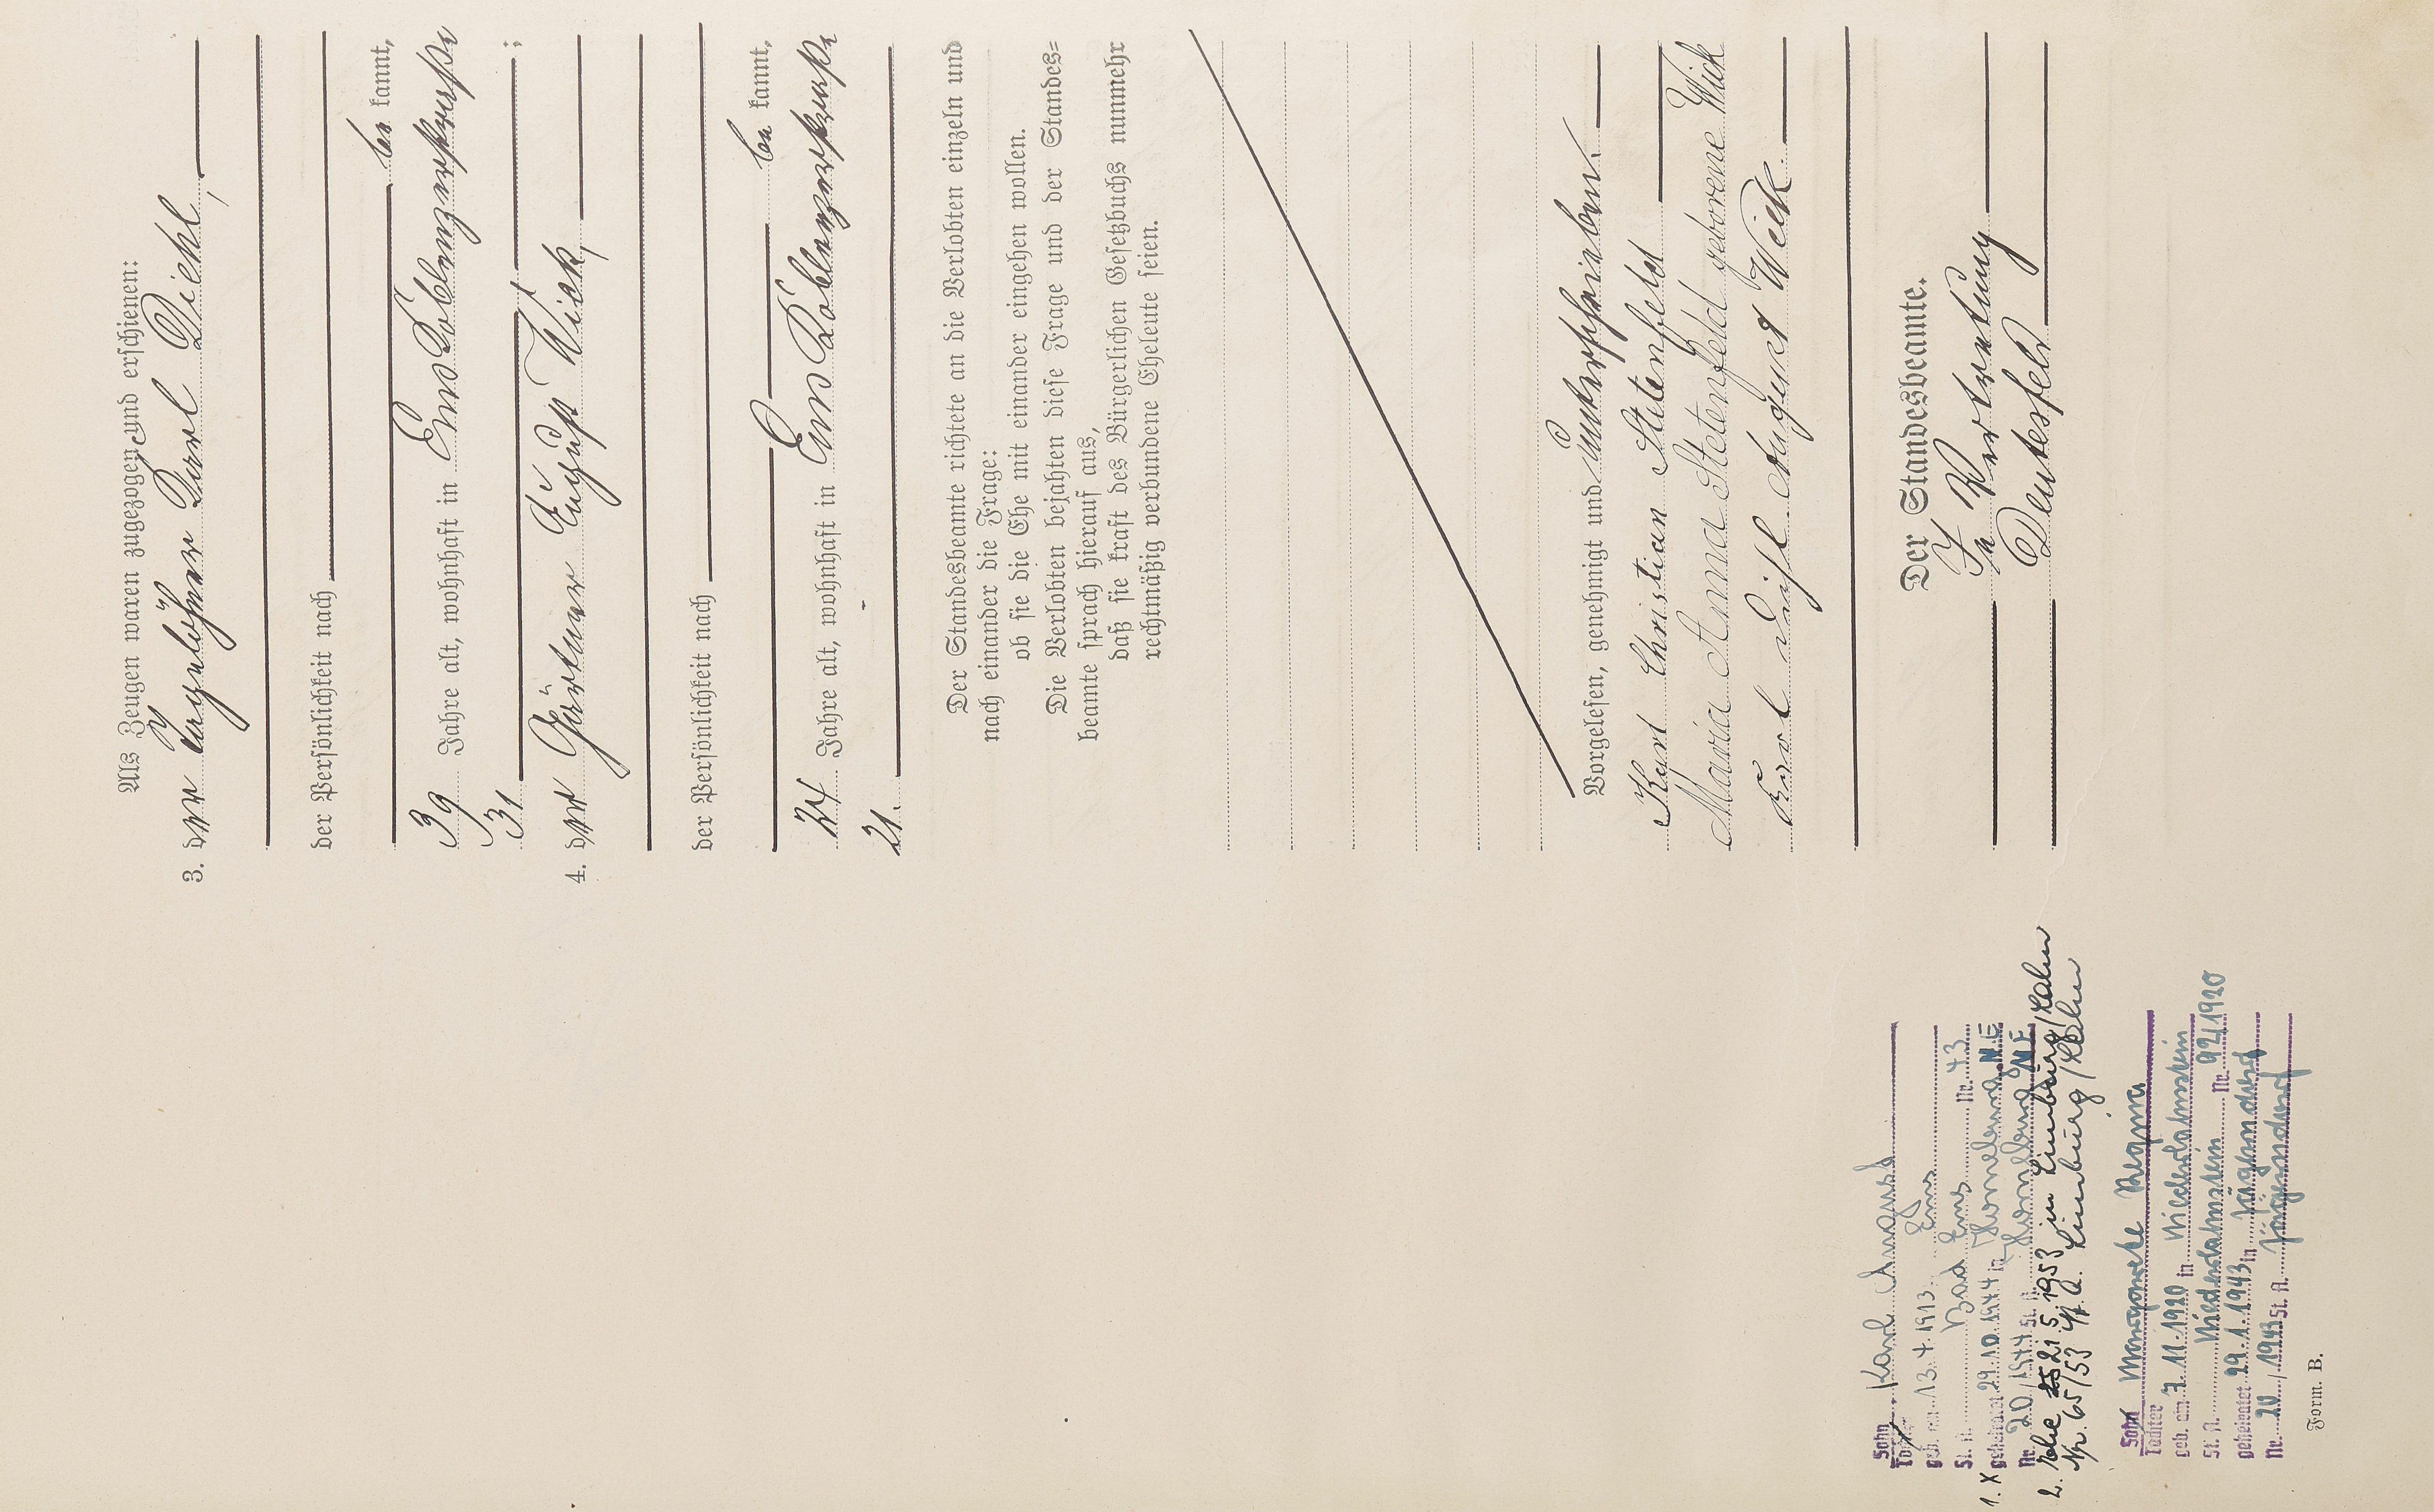 Als Zeugen waren zugezogen und erschienen:
3. der Tagelöhner Karl Diehl,
der Persönlichkeit nach
be kannt,
39 Jahre alt, wohnhaft in Ems Koblenzerstraße
31 ;
4. der Gärtner August Wick,
der Persönlichkeit nach
be kannt,
24 Jahre alt, wohnhaft in Ems Koblenzerstraße
21.
Der Standesbeamte richtete an die Verlobten einzeln und
nach einander die Frage:
ob sie die Ehe mit einander eingehen wollen.
Die Verlobten bejahten diese Frage und der Standes=
beamte sprach hierauf aus,
daß sie kraft des Bürgerlichen Gesetzbuchs nunmehr
rechtmäßig verbundene Eheleute seien.
Vorgelesen, genehmigt und unterschrieben.
Karl Christian Stetenfeld
Maria Anna Stetenfeld geborene Wick
Karl Diehl August Wick.
Der Standesbeamte.
In Vertretung
Deutesfeld
Sohn Karl August
Tochter
geb. am 13.4.1913 Ems
St. A. Bad Ems Nr. 43
1. X geheiratet 29.10.1944 in N.E
Nr. 20/1944 St. A. N E
2. Ehe 21.5.1953 in Limburg/Lahn
Nr. 65/53 St. A. Limburg/Lahn
Sohn Margarete Regina
Tochter
geb. am 7.11.1920 in Niederlahnstein
St. A. Niederlahnstein Nr. 92/1920
geheiratet 29.1.1943 in Jägerndorf
Nr. 20/1943 St. A. Jägerndorf
Form. B.